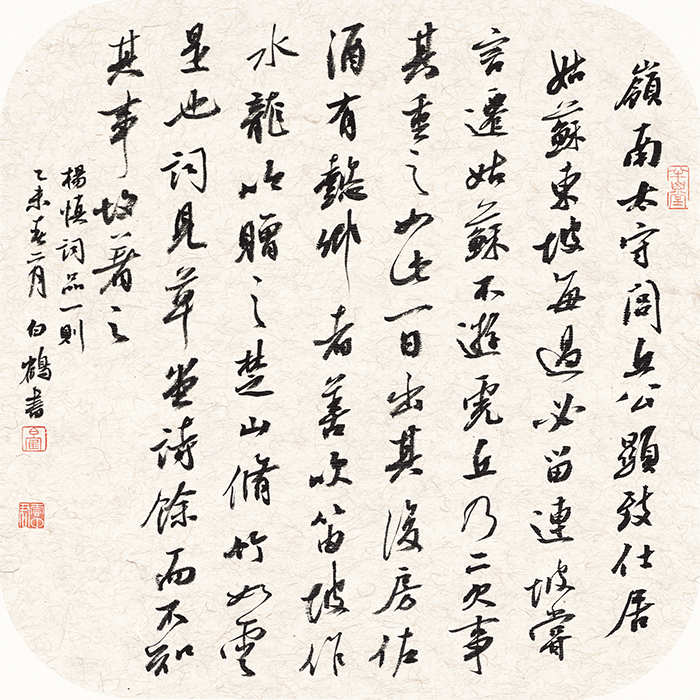 嶺南太守閭丘公顯致仕居
姑蘇東坡每過必留連坡嘗
言遷姑蘇不遊虎丘乃二欠事
其重之如此一日出其後房佐
酒有懿卿者善吹笛坡作
水龍吟贈之楚山脩竹如雲
是也詞見草堂詩餘而不知
其事故著之
楊慎詞品一則
乙未春二月 白鶴書